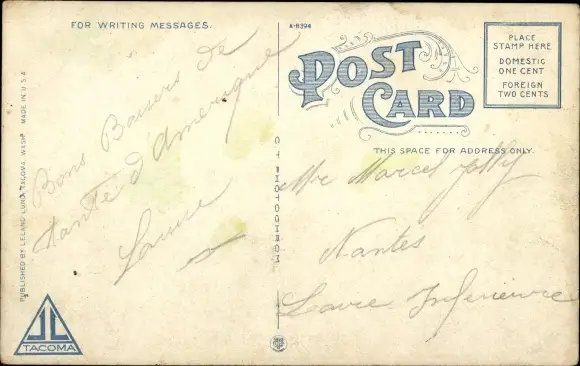 FOR WRITING MESSAGES.
A-8394
POST CARD
PLACE
STAMP HERE
DOMESTIC
ONE CENT
FOREIGN
TWO CENTS
THIS SPACE FOR ADDRESS ONLY.
Bons Baisers de
tante d'Amerique
Laure
Mr Marcel Jolly
Nantes
Loire Inferieure
PUBLISHED BY LELAND LUND, TACOMA, WASH. MADE IN U.S.A
TACOMA